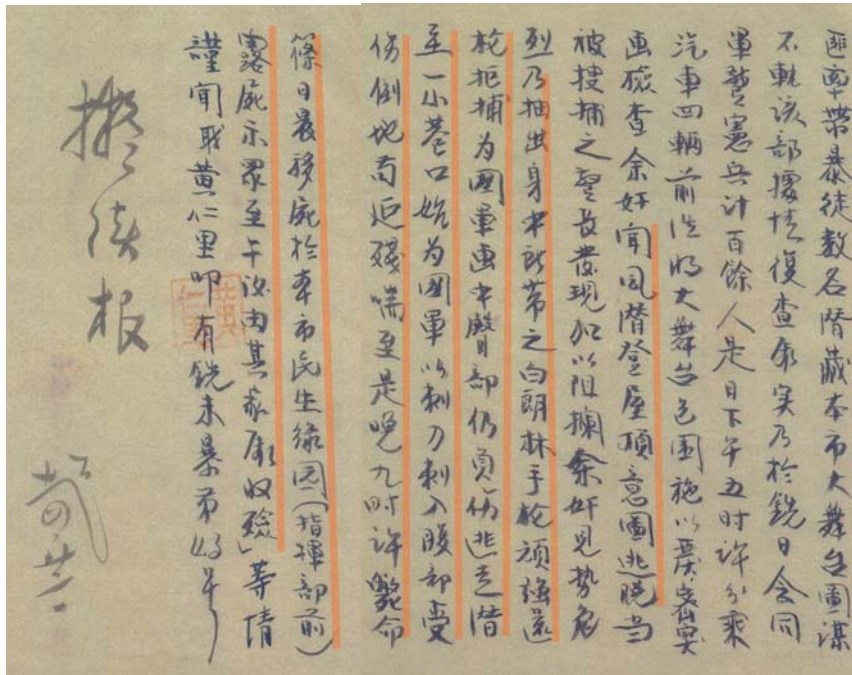 匪率帶暴徒數名潛藏本市大舞台圖謀
不軌該部據情復查屬實乃於銑日會同
軍警憲兵計百餘人是日下午五时許分乘
汽車四輛前往將大舞台包围施以嚴密實
画檢查余奸闻风潛登屋頂意圖逃脫当
被搜捕之警長發現加以阻攔余奸見势危
烈乃抽出身中所帶之白朗林手枪頑強還
枪拒捕为國軍画中臀部仍負伤逃走潛
至一小巷口始为國軍以刺刀刺入腹部受
伤倒地苟延殘喘至是晚九时許斃命
篠日晨移屍於本市民生綠园(指揮部前)
露屍示眾至午後由其家屬收殮」等情
謹闻職黃仁里叩有銑未暴第
擬續报